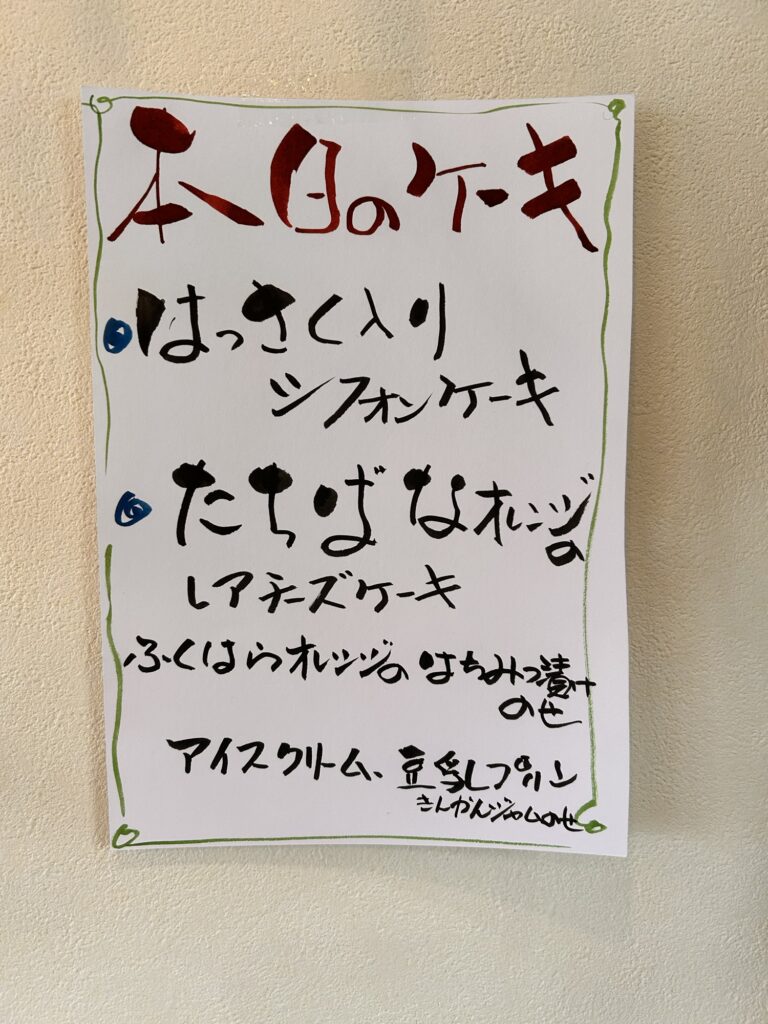 本日のケーキ
はっさく入り
シフォンケーキ
たちばなオレンジの
レアチーズケーキ
ふくはらオレンジの はちみつ漬け
のせ
アイスクリーム、豆乳プリン
きんかんジャムのせ